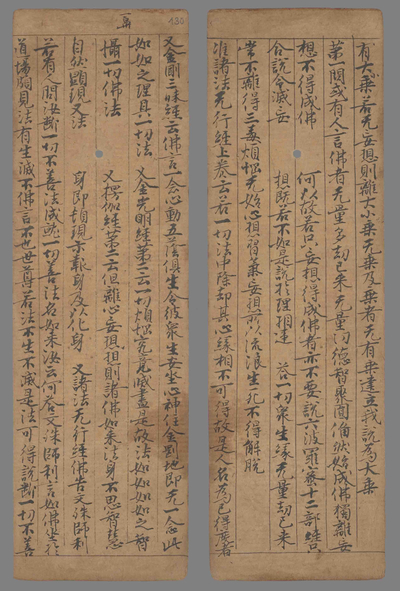 有大乘若无妄想則離大小乘无乘及乘者无有乘建立我說為大乘
第一問或有人言佛者无量多劫已來无量功德智聚圓備然始成佛獨離妄
想不得成佛 何以故若只妄想得成佛者亦不要說六波羅蜜十二部經只
合說令滅妄 想既若不如是說於理相違 答一切衆生緣无量劫已來
常不離得三毒煩惱无始心想習氣妄想所以流浪生死不得解脫
准諸法无行經上卷云若一切法中除却其心緣相不可得故是人名為已得度者
130
又金剛三昧經云佛言一念心動五蔭俱生令彼衆生安坐心神住金剛地即无一念此
如如之理具一切法 又金光明經第二云一切煩惱究竟滅盡是故法如如如如之智
攝一切佛法 又楞伽經第二云但離心妄想想則諸佛如來法身不思智慧
自然顯現又法 身即頓現示報身及以化身 又諸法无行經佛告文殊師利
若有人問汝斷一切不善法成就一切善法名如來汝云何答文殊師利言如佛坐於
道場頗見法有生滅不佛言不也世尊若法不生不滅是法可得說斷一切不善